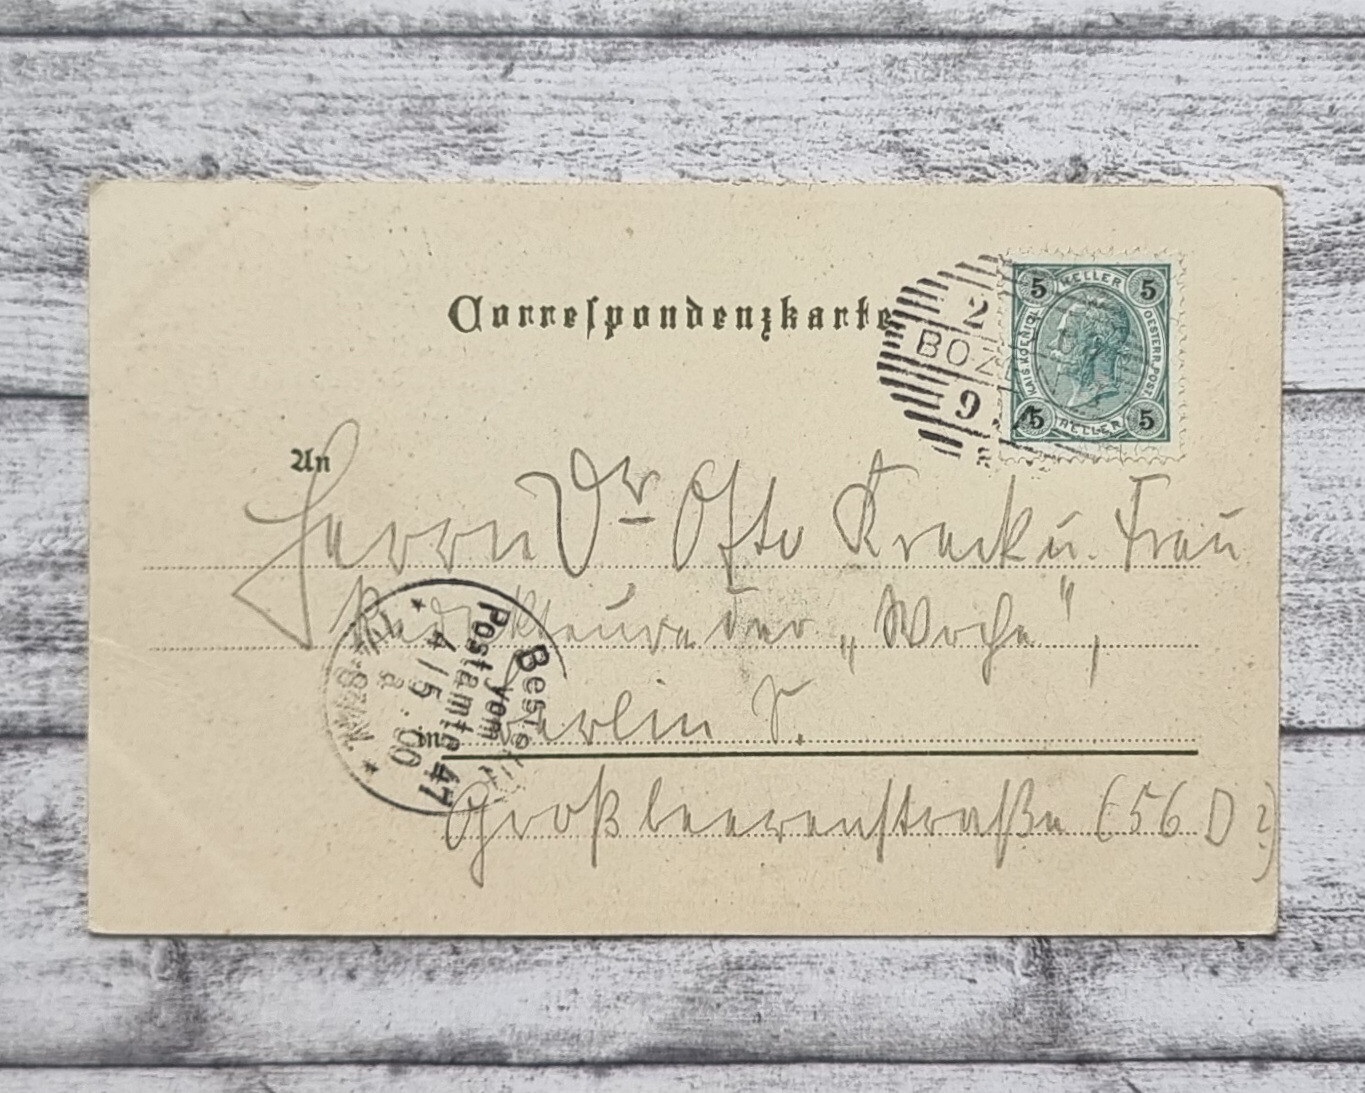 Correspondenzkarte
2
BOZ
9
5 HELLER 5
KAIS. KOENIGL. OESTERR. POST.
5 HELLER 5
An
Herrn Dr Otto Krack u. Frau
Redakteur der „Woche",
in Berlin S.
Großbeerenstraße (56 D ?)
Bestellt
vom
Postamte 47
4/5.00